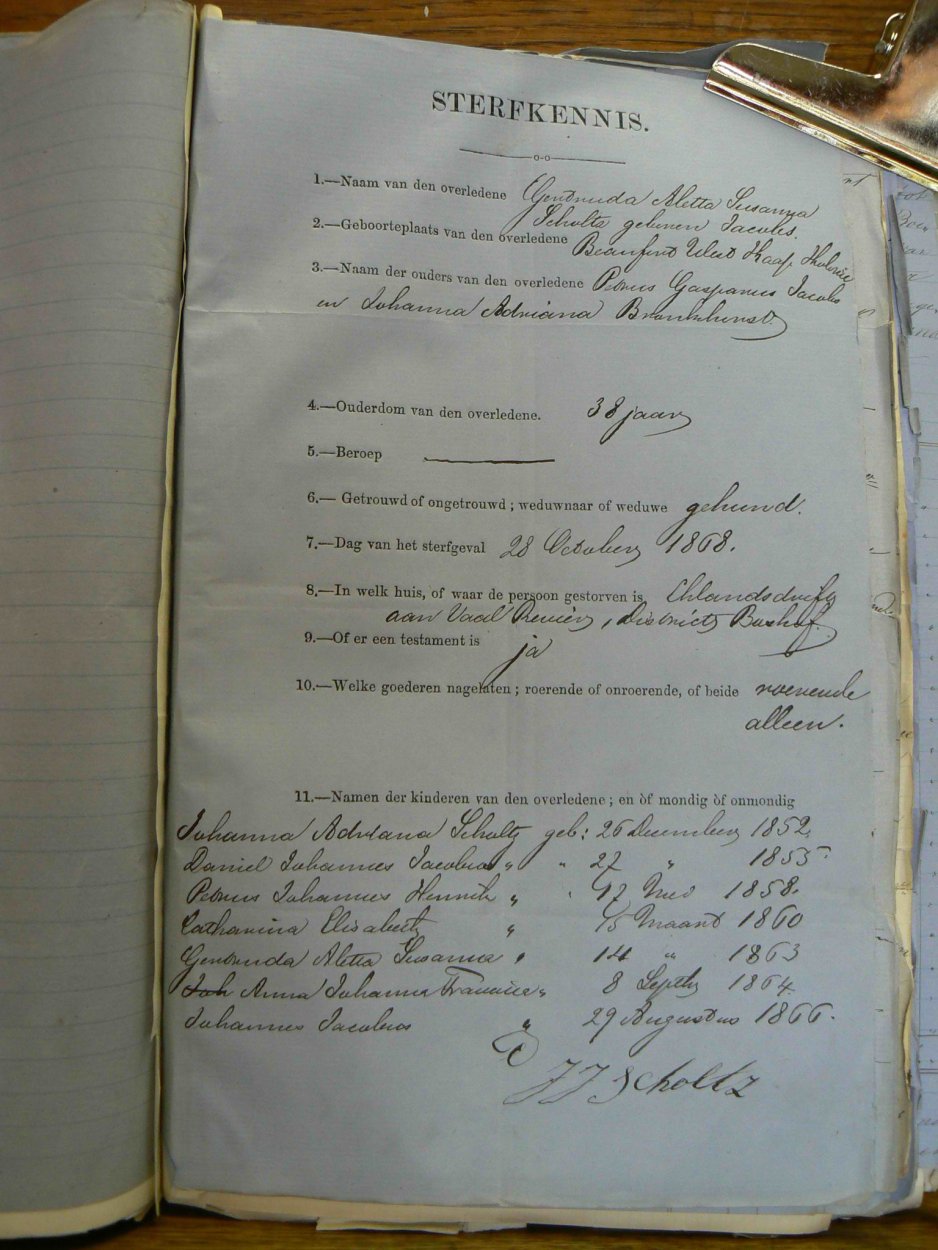 STERFKENNIS.
1.—Naam van den overledene Gertruida Aletta Susanna
Scholtz geboren Jacobs.
2.—Geboorteplaats van den overledene Beaufort West Kaap Kolonie
3.—Naam der ouders van den overledene Petrus Gasparus Jacobs
en Johanna Adriana Bronkhorst
4.—Ouderdom van den overledene. 38 jaar
5.—Beroep
6.—Getrouwd of ongetrouwd; weduwnaar of weduwe gehuwd.
7.—Dag van het sterfgeval 28 October 1868.
8.—In welk huis, of waar de persoon gestorven is,
aan Vaal Revier, District Boshof
9.—Of er een testament is ja
10.—Welke goederen nagelaten; roerende of onroerende, of beide roerende
alleen.
11.—Namen der kinderen van den overledene; en òf mondig òf onmondig
Johanna Adriana Scholtz geb: 26 December 1852.
Daniel Johannes Jacobus „ „ 27 „ 1855
Petrus Johannes Hendrik „ „ 12 Mei 1858.
Catharina Elisabeth „ 15 Maart 1860
Gertruida Aletta Susanna „ 14 „ 1863
Joh Anna Johanna „ 8 Septbr 1864
Johannes Jacobus „ 29 Augustus 1866.
JJ Scholtz